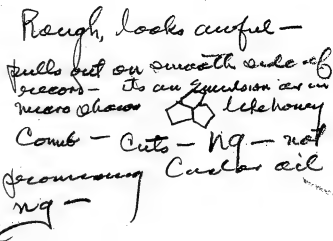 Rough, looks awful —
pulls out on smooth side of
record — its an emulsion as in
micro shows like honey
Comb — Cuts — Ng — not
promising Castor oil
ng —